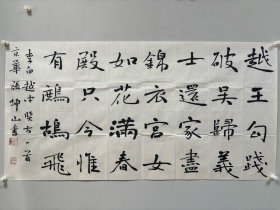 越王勾踐
破吳歸義
士還家盡
錦衣宮女
如花滿春
殿只今惟
有鷓鴣飛
李白越中覽古一首
京華張坤山書